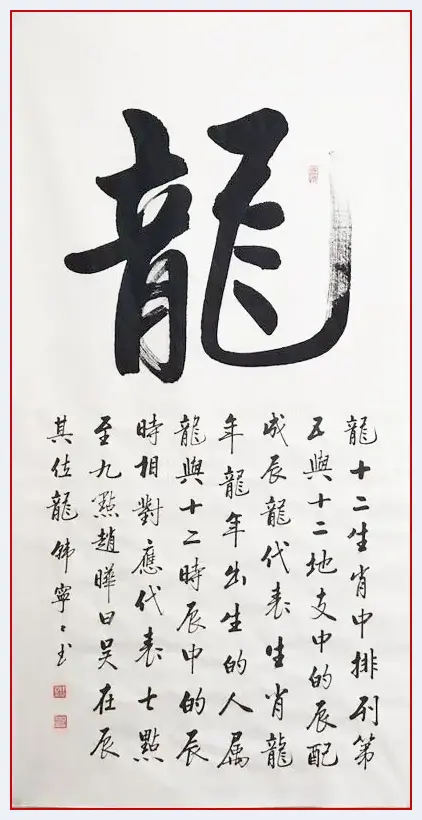 龍
龍十二生肖中排列第
五與十二地支中的辰配
成辰龍代表生肖龍
年龍年出生的人属
龍與十二時辰中的辰
時相對應代表七點
至九點趙曄曰吴在辰
其位龍 韩寧〻书